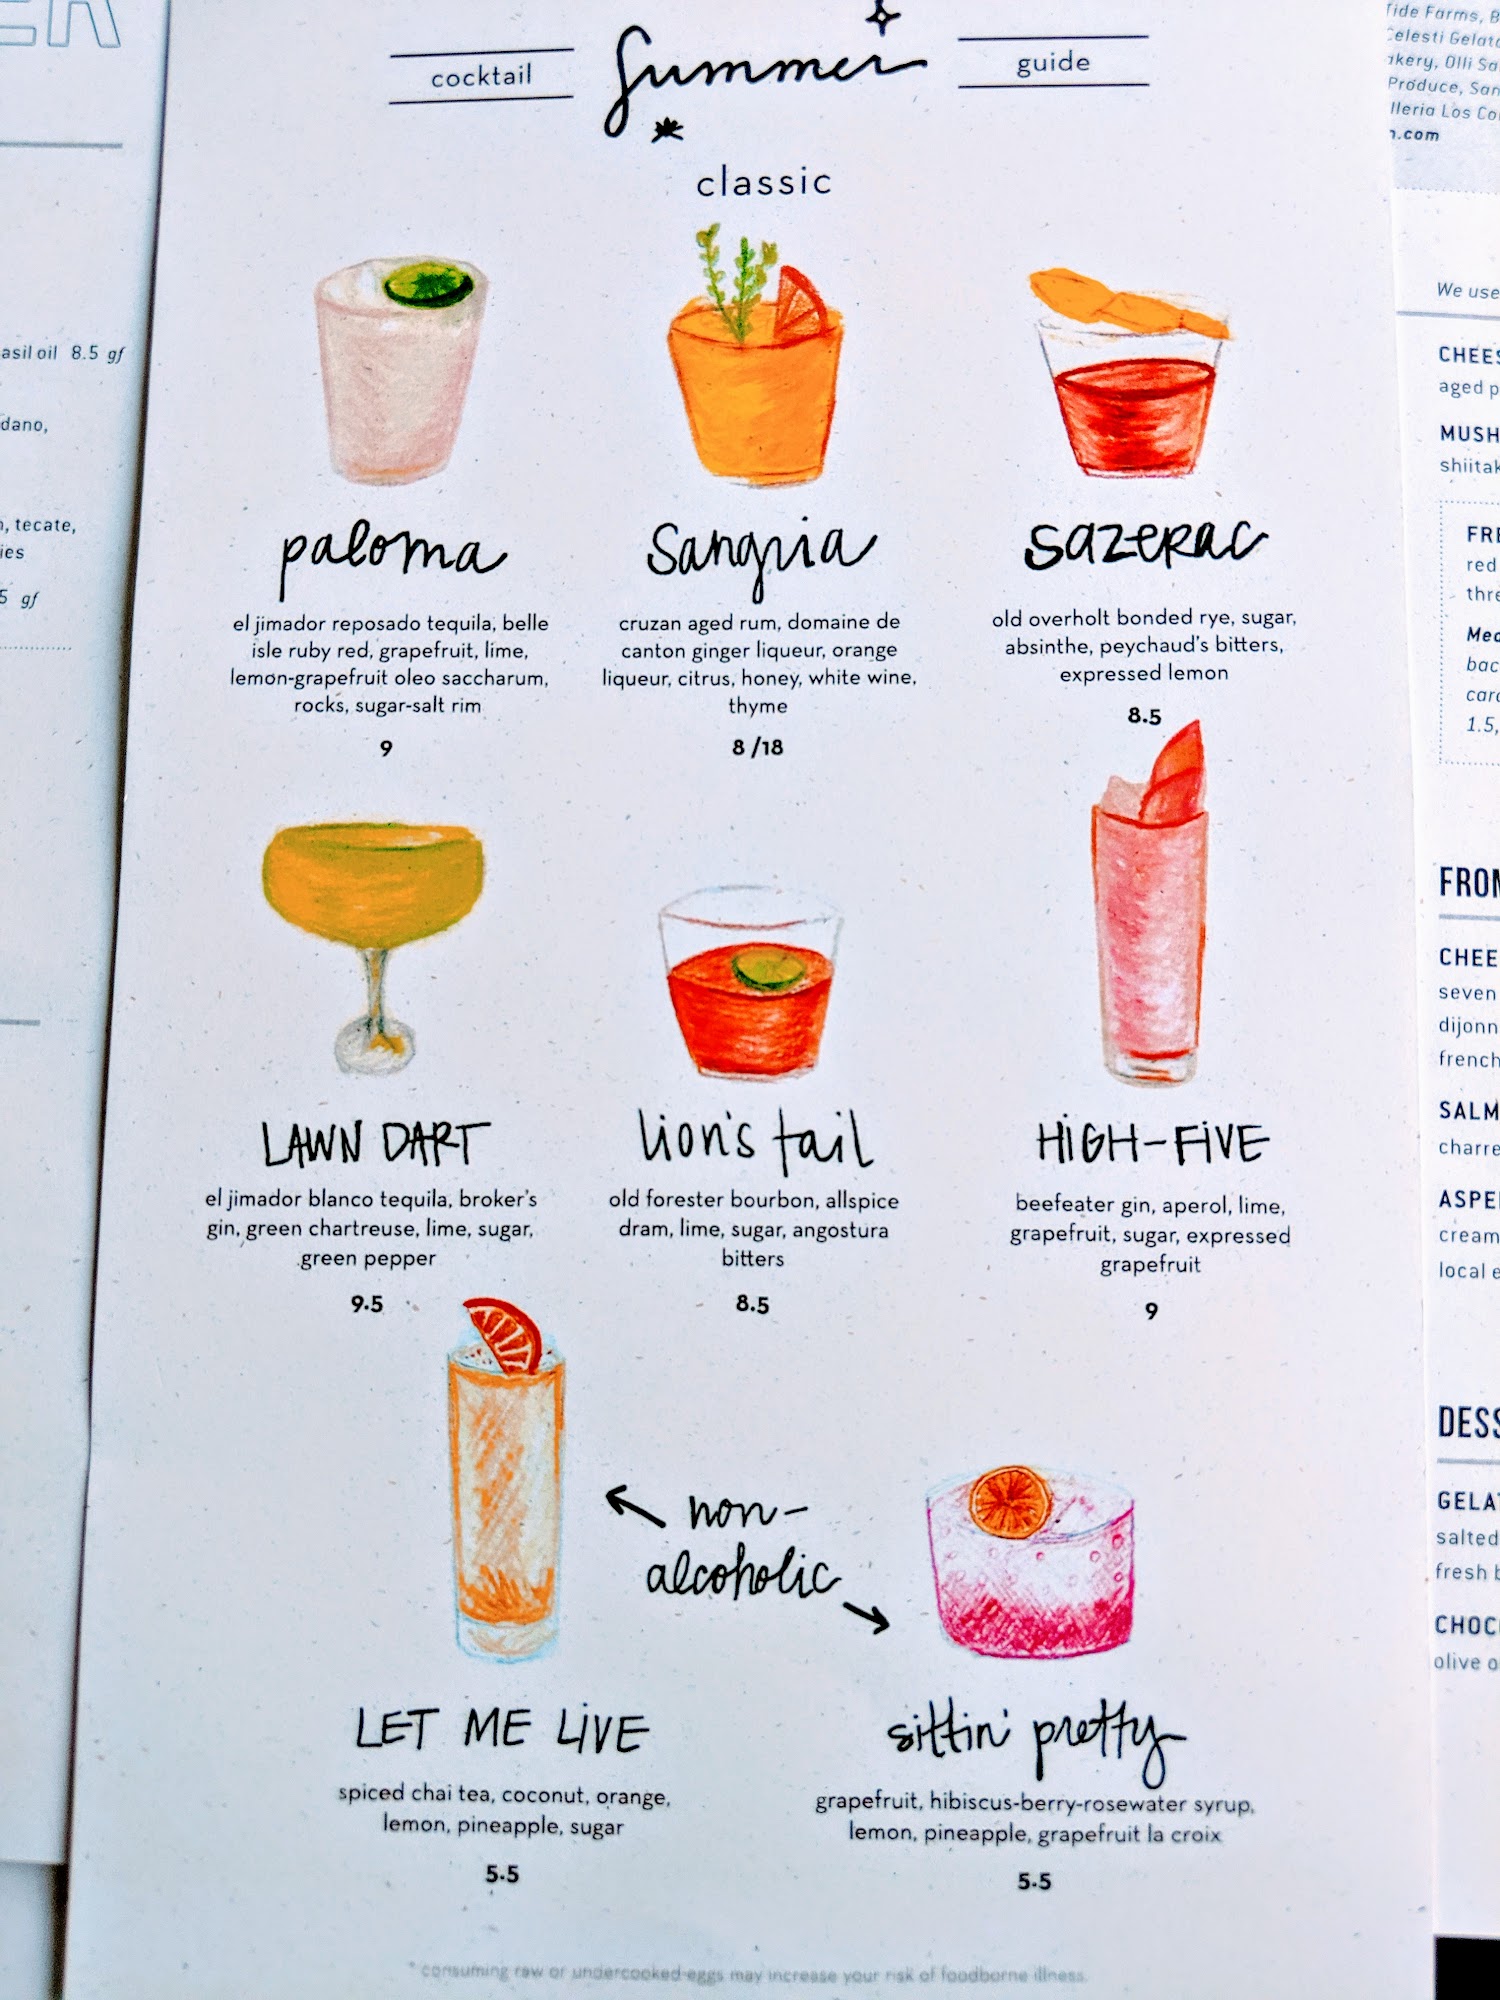 cocktail Summer guide
classic
paloma
el jimador reposado tequila, belle
isle ruby red, grapefruit, lime,
lemon-grapefruit oleo saccharum,
rocks, sugar-salt rim
9
Sangria
cruzan aged rum, domaine de
canton ginger liqueur, orange
liqueur, citrus, honey, white wine,
thyme
8 /18
sazerac
old overholt bonded rye, sugar,
absinthe, peychaud's bitters,
expressed lemon
8.5
LAWN DART
el jimador blanco tequila, broker's
gin, green chartreuse, lime, sugar,
green pepper
9.5
lion's tail
old forester bourbon, allspice
dram, lime, sugar, angostura
bitters
8.5
HiGH-FiVE
beefeater gin, aperol, lime,
grapefruit, sugar, expressed
grapefruit
9
non-
alcoholic
LET ME LiVE
spiced chai tea, coconut, orange,
lemon, pineapple, sugar
5.5
sittin' pretty
grapefruit, hibiscus-berry-rosewater syrup,
lemon, pineapple, grapefruit la croix
5.5
* consuming raw or undercooked eggs may increase your risk of foodborne illness.
oil 8.5 gf
tecate,
gf
Farms,
Produce,
Los
We use
aged
FROM
seven
french
charred
cream
local
salted
fresh
olive